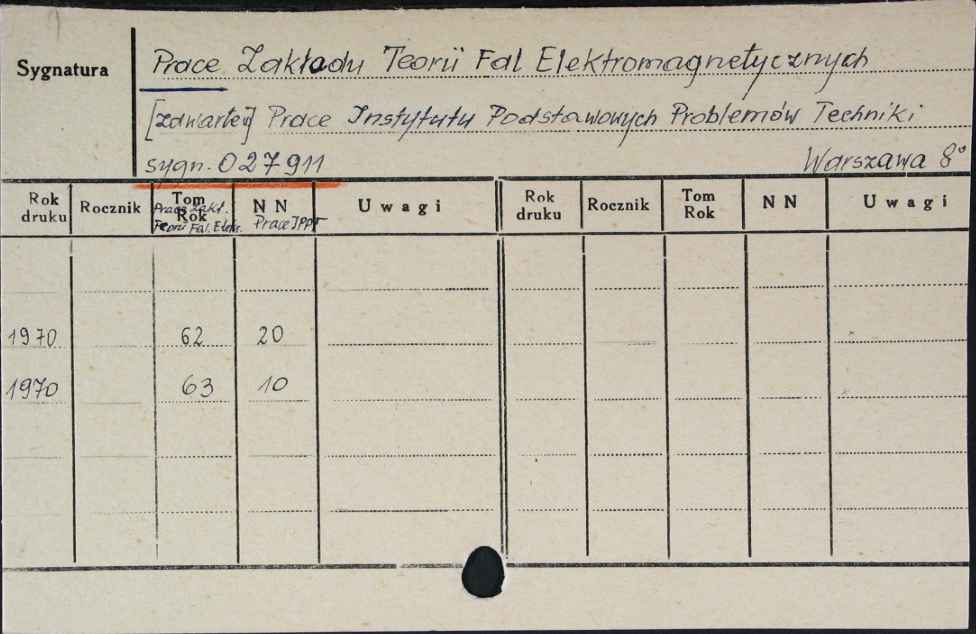 Sygnatura
Prace Zakładu Teorii Fal Elektromagnetycznych
[zawarte w] Prace Instytutu Podstawowych Problemów Techniki
sygn. 027911 Warszawa 8°
Rok druku Rocznik Tom Rok N N Uwagi Rok druku Rocznik Tom Rok N N Uwagi
Prace Zakł. Teorii Fal. Elektr. Prace IPPT
1970 62 20
1970 63 10